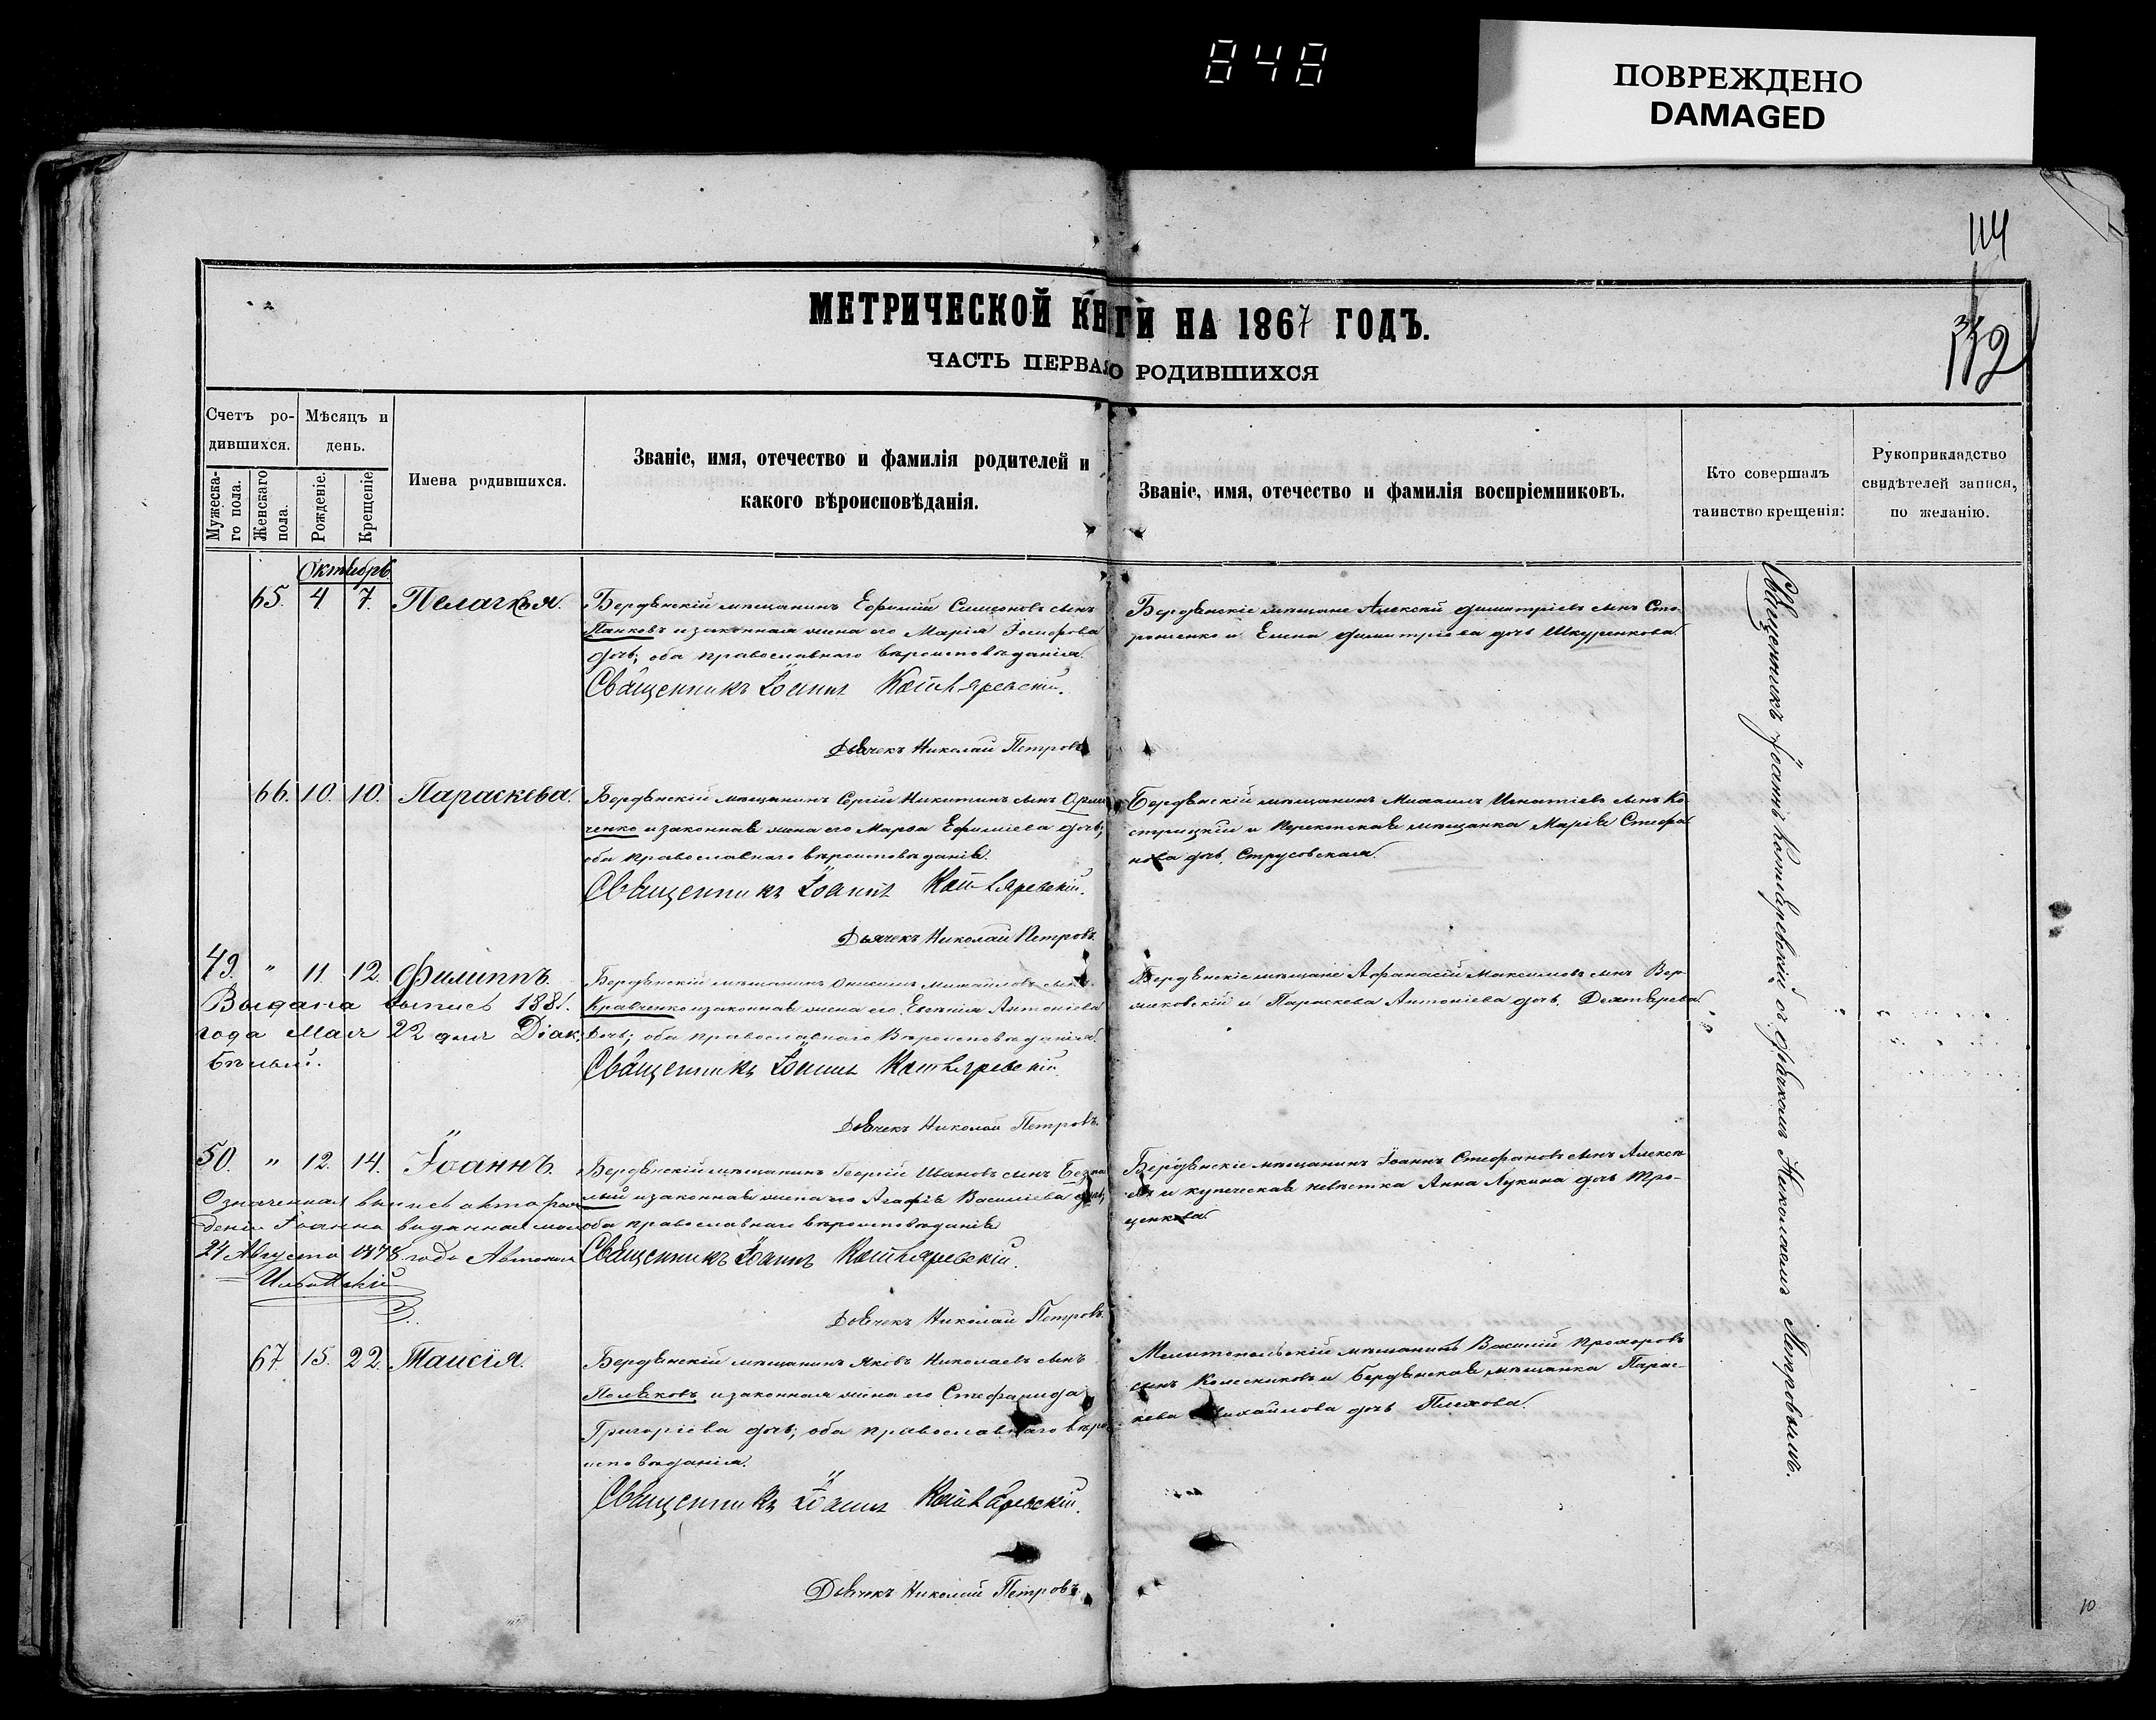 848
ПОВРЕЖДЕНО
DAMAGED
114
112
МЕТРИЧЕСКОЙ КНИГИ НА 1867 ГОДЪ.
ЧАСТЬ ПЕРВАЯ О РОДИВШИХСЯ
Счетъ ро-
дившихся.
Мужеска-
го пола.
Женскаго
пола.
Мѣсяцъ и
день.
Рожденіе.
Крещеніе
Имена родившихся.
Званіе, имя, отечество и фамилія родителей и
какого вѣроисповѣданія.
Званіе, имя, отечество и фамилія воспріемниковъ.
Кто совершалъ
таинство крещенія:
Рукоприкладство
свидѣтелей записи,
по желанію.
Октябрь
65. 4 7. Пелагія.
Бердянскій мѣщанинъ Ефимій Симеоновъ сынъ
Панковъ и законная жена его Марія
дочь; оба православнаго вѣроисповѣданія.
Священникъ Іоаннъ Котляревскій.
Дьячекъ Николай Петровъ
Бердянскіе мѣщане Алексѣй Димитріевъ сынъ Сто-
роженко и Елена Димитріева дочь Шкуренкова.
66. 10. 10. Параскева.
Бердянскій мѣщанинъ Сергій Никитинъ сынъ
ченко и законная жена его Марѳа Ефиміева дочь;
оба православнаго вѣроисповѣданія.
Священникъ Іоаннъ Котляревскій.
Дьячекъ Николай Петровъ.
Бердянскій мѣщанинъ Михаилъ Игнатіевъ сынъ Ко-
стрицкій и Перекопская мѣщанка Марія Стефа-
нова дочь Струсовская.
49. " 11 12. Филиппъ.
Выдана выпись 1881.
года Мая 22 дня Діак.
Бѣлый.
Бердянскій мѣщанинъ Онисимъ Михайловъ сынъ
Кравченко и законная жена его Евгенія Антоніева
дочь; оба православнаго Вѣроисповѣданія.
Священникъ Іоаннъ Котляревскій
Дьячекъ Николай Петровъ.
Бердянскіе мѣщане Аѳанасій Максимовъ сынъ Вер-
жиковскій и Параскева Антоніева дочь Дехтярева.
50. " 12. 14. Іоаннъ.
Означенная выпись акта о рож
деніи Іоанна выданная мной
24 Августа 1878 года
Бердянскій мѣщанинъ Георгій Ивановъ сынъ
лый и законная жена его Агафія Василіева дочь;
оба православнаго вѣроисповѣданія
Священникъ Іоаннъ Котляревскій.
Дьячекъ Николай Петровъ.
Бердянскіе мѣщанинъ Іоаннъ Стефановъ сынъ Алексѣ-
евъ и купеческая невѣстка Анна Лукина дочь Тро-
ценкова.
67 15. 22. Таисія.
Бердянскій мѣщанинъ Яковъ Николаевъ сынъ
Поляковъ и законная жена его Стефанида
Григоріева дочь; оба православнаго вѣро
исповѣданія.
Священникъ Іоаннъ Котляревскій.
Дьячекъ Николай Петровъ.
Мелитопольскій мѣщанинъ Василій Прохоровъ
сынъ Колесниковъ и Бердянская мѣщанка Парас-
кева Михайлова дочь Плехова.
Священникъ Іоаннъ Котляревскій съ дьячкомъ Николаемъ Петровымъ.
10